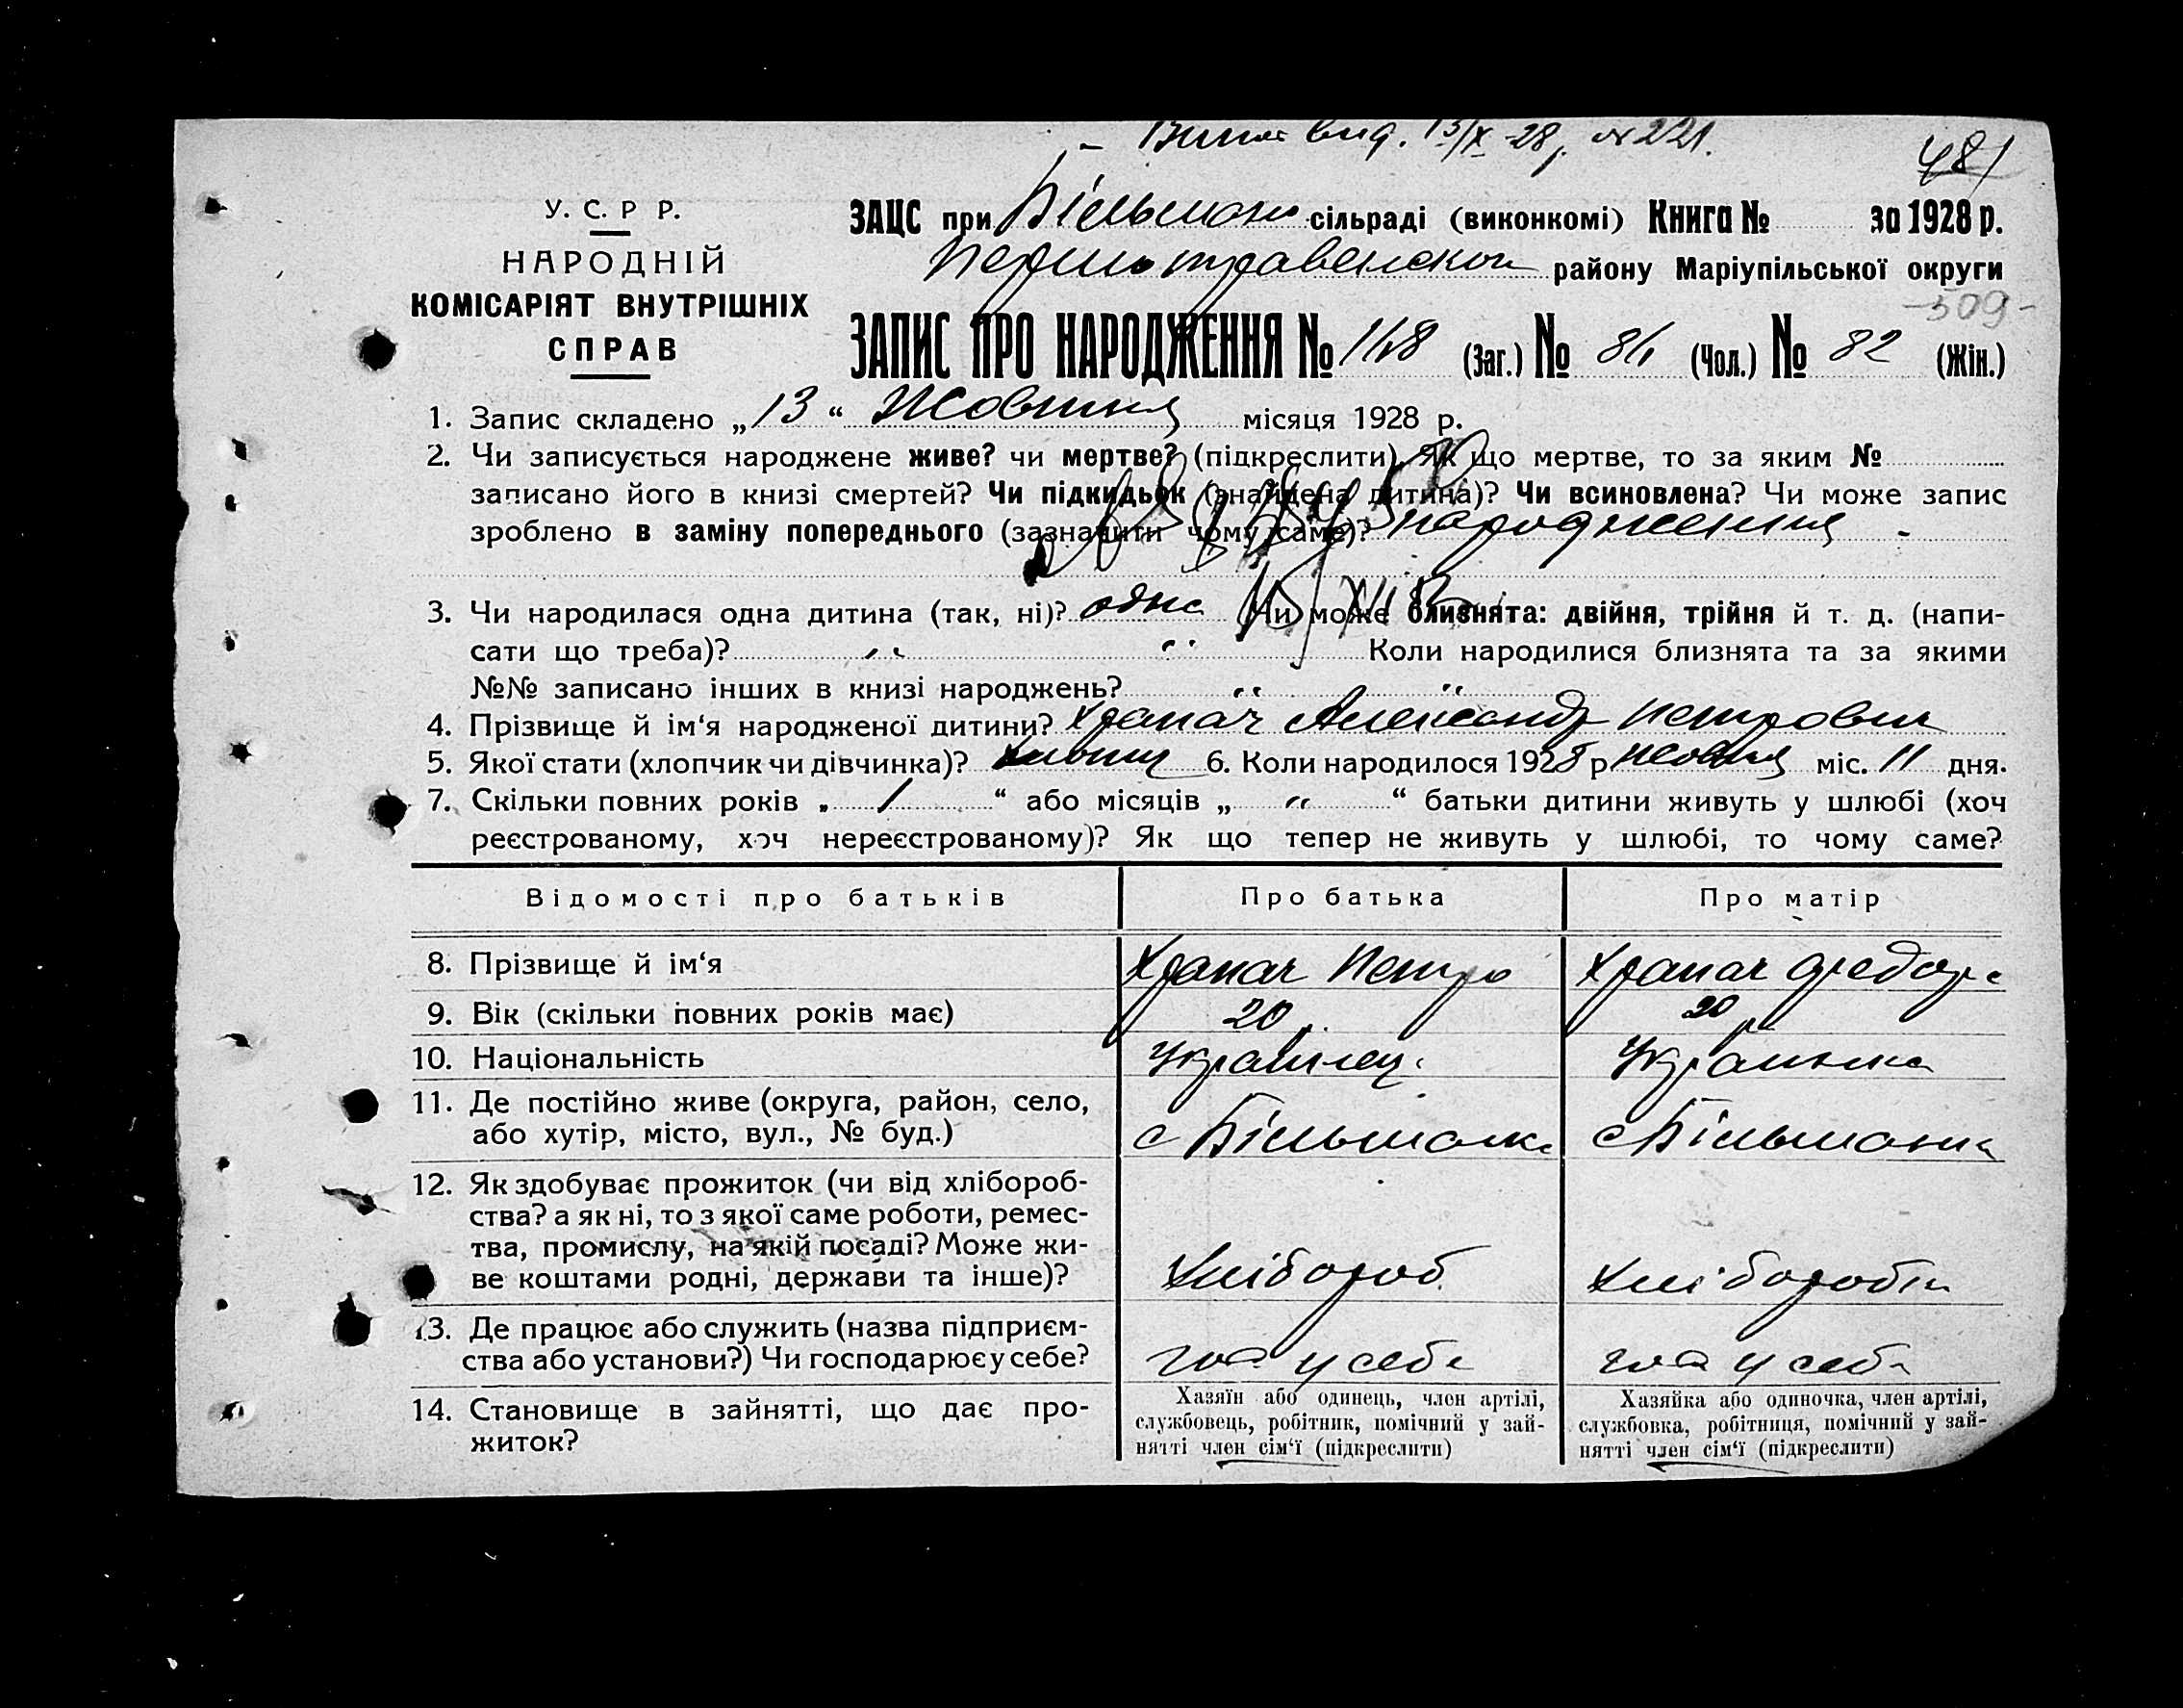 вид. 13/X 28 р. № 221.
481
У. С. Р Р.
НАРОДНІЙ
КОМІСАРІЯТ ВНУТРІШНІХ
СПРАВ
ЗАЦС при Більман сільраді (виконкомі) Книга № за 1928 р.
Першотравенської району Маріупільської округи
-509-
ЗАПИС ПРО НАРОДЖЕННЯ № 168 (Заг.) № 86 (Чол.) № 82 (Жін.)
1. Запис складено „13“ Жовтня місяця 1928 р.
2. Чи записується народжене живе? чи мертве? (підкреслити). Як що мертве, то за яким №
записано його в книзі смертей? Чи підкидьок (знайдена дитина)? Чи всиновлена? Чи може запис
зроблено в заміну попереднього (зазначити чому саме)? народження
3. Чи народилася одна дитина (так, ні)? одна Чи може близнята: двійня, трійня й т. д. (напи-
сати що треба)? " " Коли народилися близнята та за якими
№№ записано інших в книзі народжень? " "
4. Прізвище й ім‘я народженої дитини? Храпач Александр Петрович
5. Якої стати (хлопчик чи дівчинка)? хлопчик 6. Коли народилося 1928 р Жовтня міс. 11 дня.
7. Скільки повних років „ 1 “ або місяців „ " “ батьки дитини живуть у шлюбі (хоч
реєстрованому, хоч нереєстрованому)? Як що тепер не живуть у шлюбі, то чому саме?
Відомості про батьків Про батька Про матір
8. Прізвище й ім‘я Храпач Петро Храпач Федора
9. Вік (скільки повних років має) 20 р. 20 р
10. Національність Українець Українка
11. Де постійно живе (округа, район, село,
або хутір, місто, вул., № буд.) с Більманка с Більманка
12. Як здобуває прожиток (чи від хлібороб-
ства? а як ні, то з якої саме роботи, ремес-
тва, промислу, на якій посаді? Може жи-
ве коштами родні, держави та інше)? Хлібороб Хлібороб
13. Де працює або служить (назва підприєм-
ства або установи?) Чи господарює у себе? у себе у себе
14. Становище в зайнятті, що дає про-
житок?
Хазяїн або одинець, член артілі,
службовець, робітник, помічний у зай-
нятті член сім‘ї (підкреслити)
Хазяйка або одиночка, член артілі,
службовка, робітниця, помічний у зай-
нятті член сім‘ї (підкреслити)